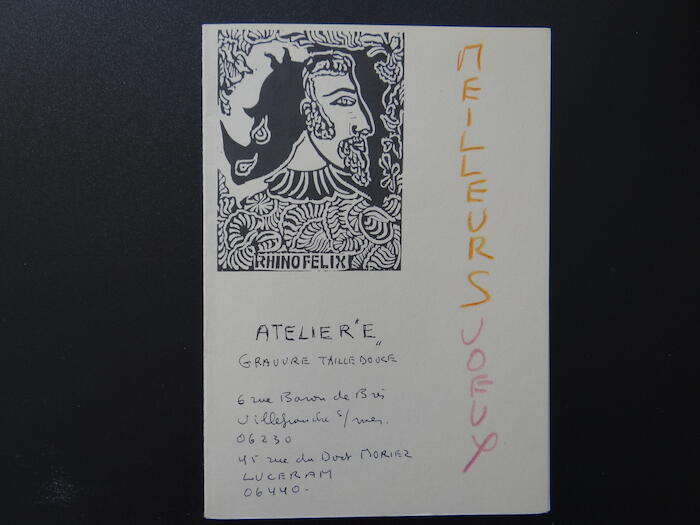 RHINO FELIX
ATELIER "E"
GRAUVRE TAILLE DOUCE
6 rue Baron de Brès
Villefranche s/mer.
06230
45 rue du Doct MORIEZ
LUCERAM
06440-
MEILLEURS VOEUX